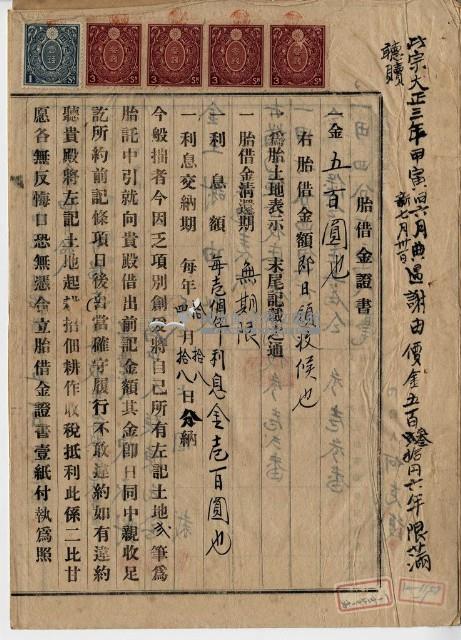 此宗大正三年甲寅旧六月典過謝由價金五百叁拾円六年限滿
新七月廿日
聽贖
胎借金證書
一金五百圓也
右胎借金額即日領收候也
一為胎土地表示 末尾記載之通
一胎借金清還期 無期限
一利息額 每壱個年利息金壱百圓也
一利息交納期 每年四月拾八日分納
今般拙者今因乏項別創爰將自己所有左記土地貳筆為
胎託中引就向貴殿借出前記金額其金即日同中親收足
訖所約前記條項日後自當確守履行不敢違約如有違約
聽貴殿將左記土地起耕招佃耕作收稅抵利此係二比甘
愿各無反悔口恐無憑合立胎借金證書壹紙付執為照
1 Sn
3 Sn
3 Sn
3 Sn
3 Sn